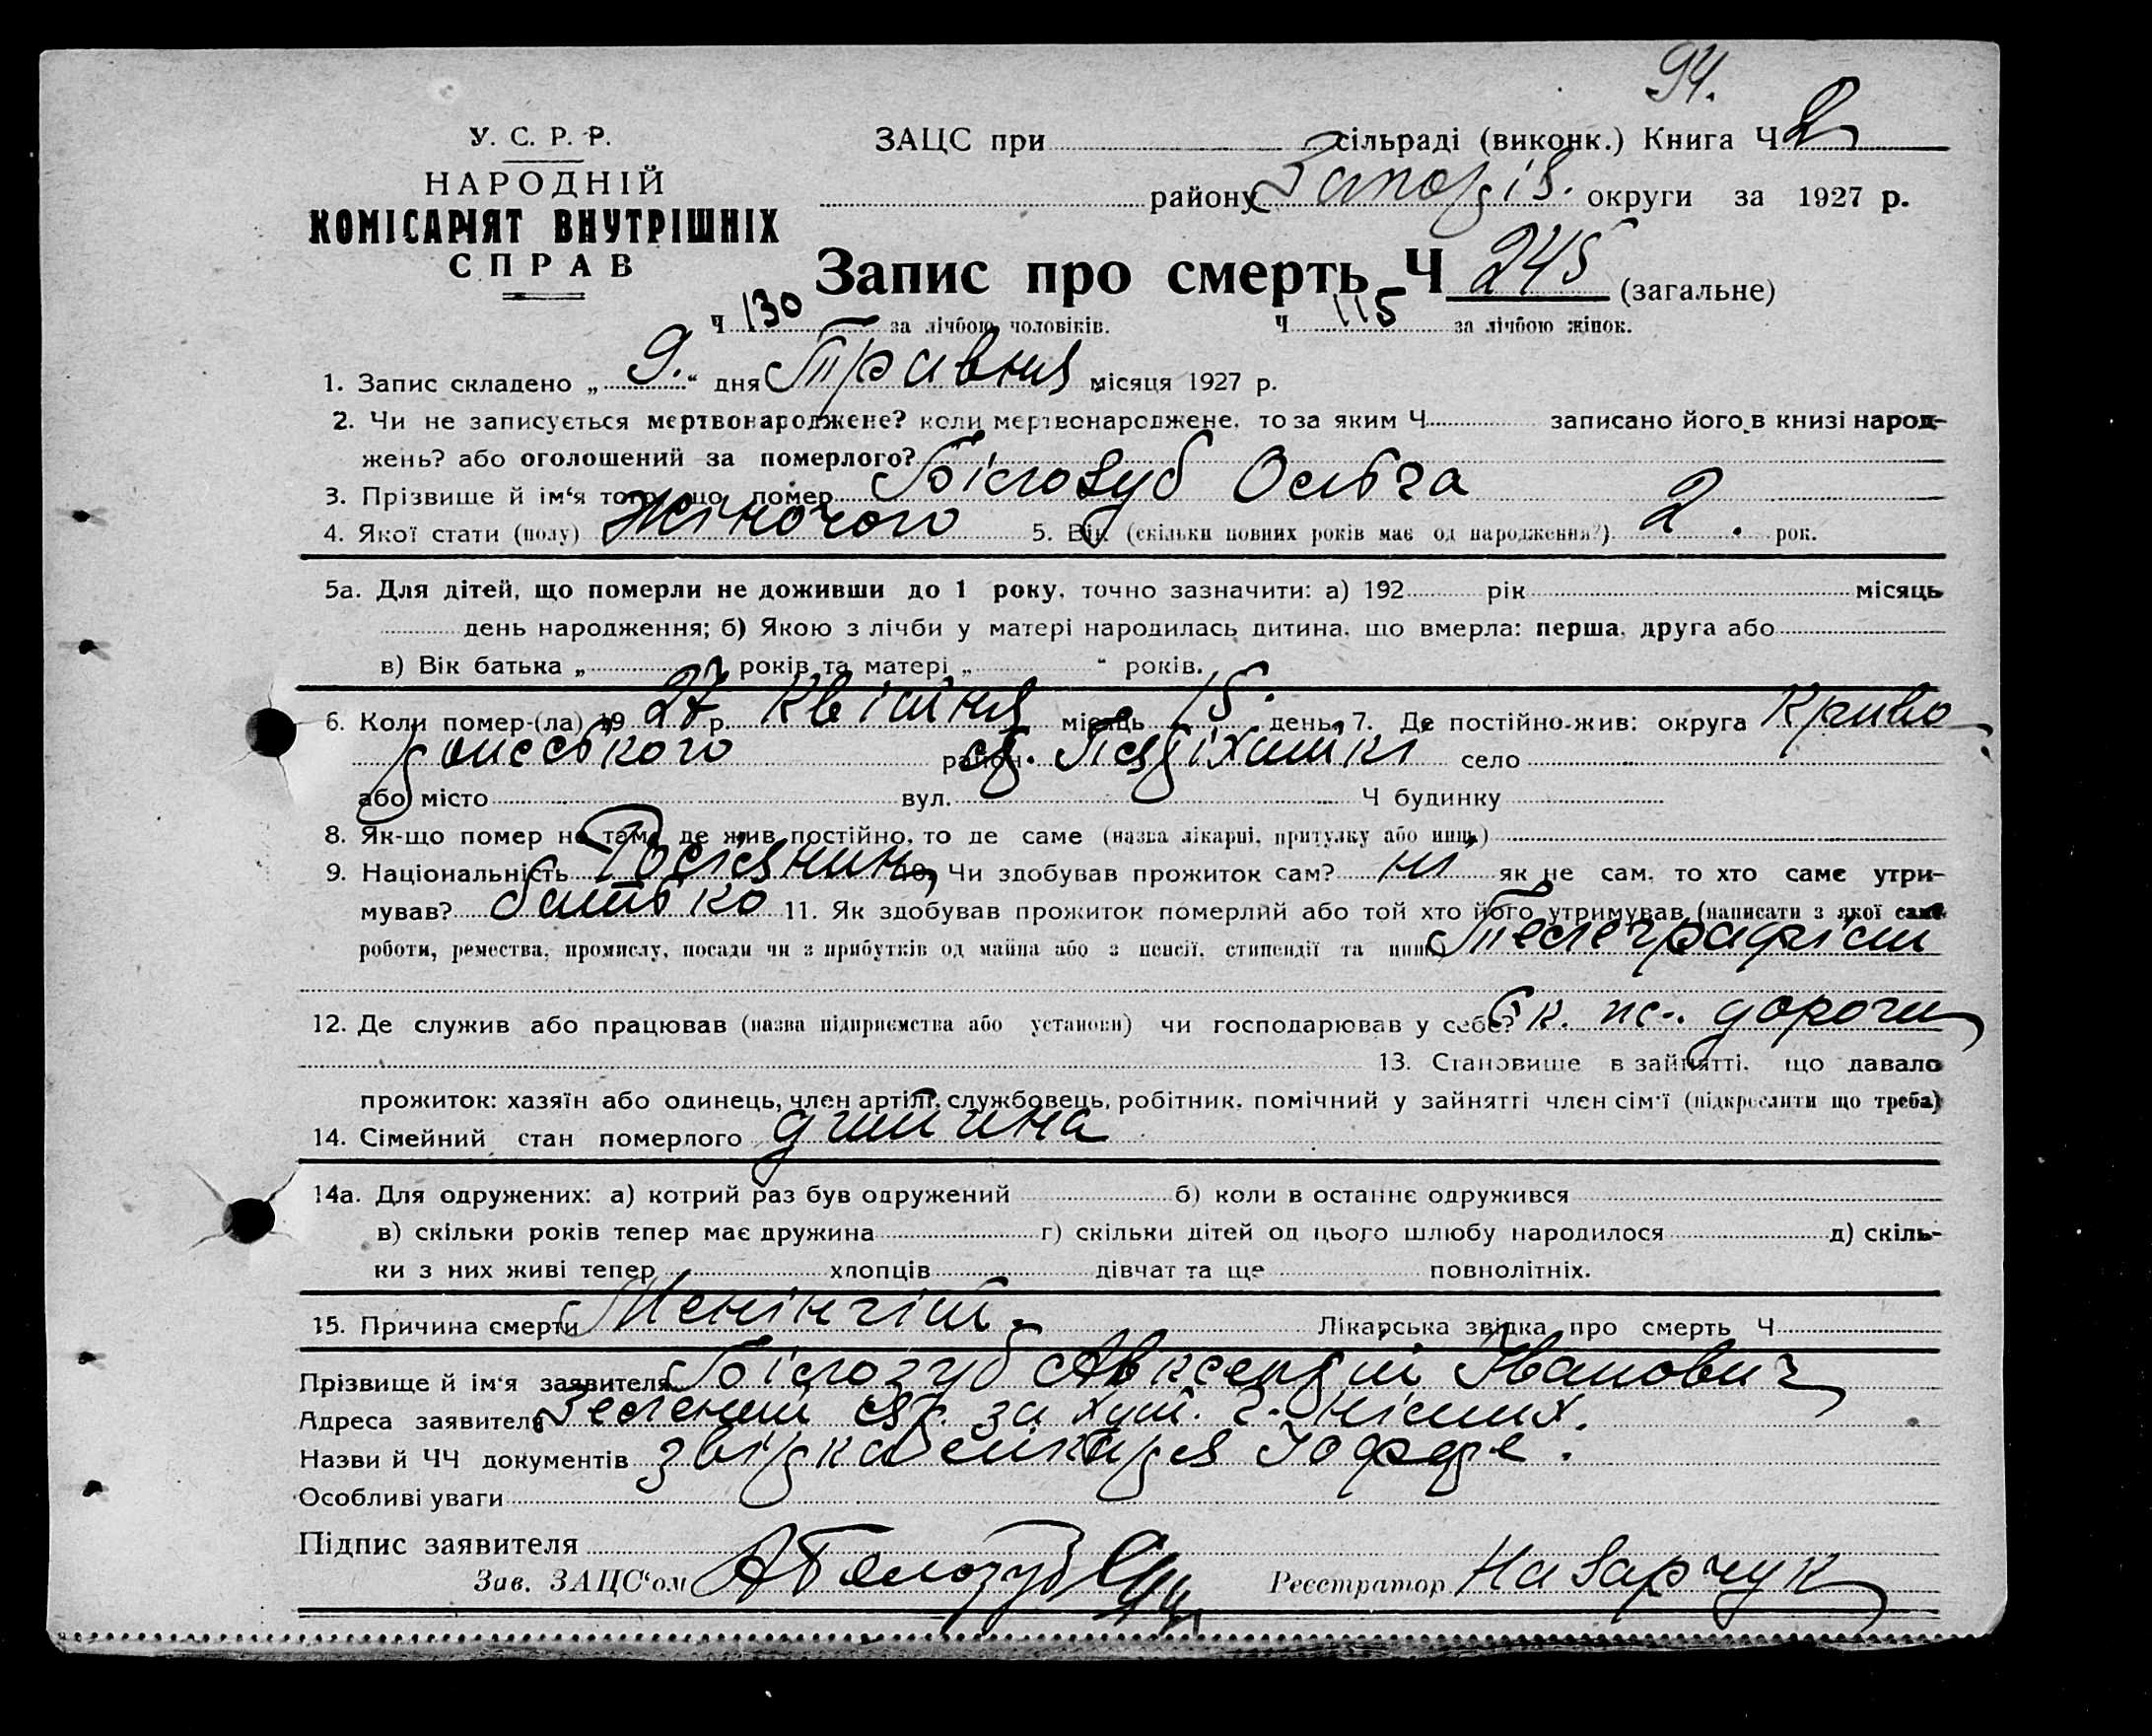 94.
У. С. Р. Р.
НАРОДНІЙ
КОМІСАРІЯТ ВНУТРІШНІХ
СПРАВ
ЗАЦС при сільраді (виконк.) Книга Ч 2
району Запоріз. округи за 1927 р.
Запис про смерть Ч 245 (загальне)
Ч 130 за лічбою чоловіків. Ч 115 за лічбою жінок.
1. Запис складено „ 9. “ дня Травня місяця 1927 р.
2. Чи не записується мертвонароджене? коли мертвонароджене, то за яким Ч записано його в книзі народ-
жень? або оголошений за померлого?
3. Прізвище й ім‘я того, що помер Білозуб Ольга
4. Якої стати (полу) Жіночого 5. Вік (скільки повних років має од народження?) 2. рок.
5а. Для дітей, що померли не доживши до 1 року, точно зазначити: а) 192 рік місяць
день народження; б) Якою з лічби у матері народилась дитина, що вмерла: перша, друга або
в) Вік батька „ “ років та матері „ “ років.
6. Коли помер-(ла) 19 27 р. Квітня місяць 15. день, 7. Де постійно жив: округа Криво
ріжського район П'ятіхатки село
або місто вул. Ч будинку
8. Як-що помер не там, де жив постійно, то де саме (назва лікарні, притулку або инш.)
9. Національність Росіянин 10. Чи здобував прожиток сам? ні як не сам, то хто саме утри-
мував? батько 11. Як здобував прожиток померлий або той хто його утримував (написати з якої саме
роботи, ремества, промислу, посади чи з прибутків од майна або з пенсії, стипендії та инш.) Телеграфіст
12. Де служив або працював (назва підприємства або установи) чи господарював у себе? Ек. жс. дороги
13. Становище в зайнятті, що давало
прожиток: хазяїн або одинець, член артілі, службовець, робітник, помічний у зайнятті член сім‘ї (підкреслити що треба)
14. Сімейний стан померлого дитина
14а. Для одружених: а) котрий раз був одружений б) коли в останнє одружився
в) скільки років тепер має дружина г) скільки дітей од цього шлюбу народилося д) скіль-
ки з них живі тепер хлопців дівчат та ще повнолітніх.
15. Причина смерти Менінгіт. Лікарська звідка про смерть Ч
Прізвище й ім‘я заявителя Білозуб Авксентій Іванович
Адреса заявителя Зелений Яр. за хут.
Назви й ЧЧ документів звідка лікаря Іоффе.
Особливі уваги
Підпис заявителя АБелозуб
Зав. ЗАЦС‘ом Реєстратор Назарчук